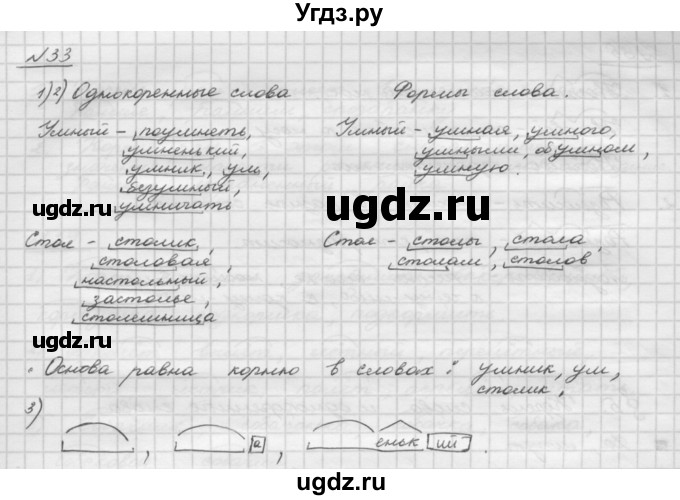 Угдз.ру
№33
1)2) Однокоренные слова Формы слова.
Умный - поумнеть, Умный - умная, умного,
умненький, умными, об умном,
умник, ум, умную.
безумный,
умничать
ugdz.ru ugdz.ru
Стол - столик, Стол - столы, стола,
столовая, столам, столов
настольный,
застолье,
столешница
ugdz.ru
Основа равна корню в словах: умник, ум,
столик.
3)
, а , еньк ий .
ugdz.ru ugdz.ru ugdz.ru